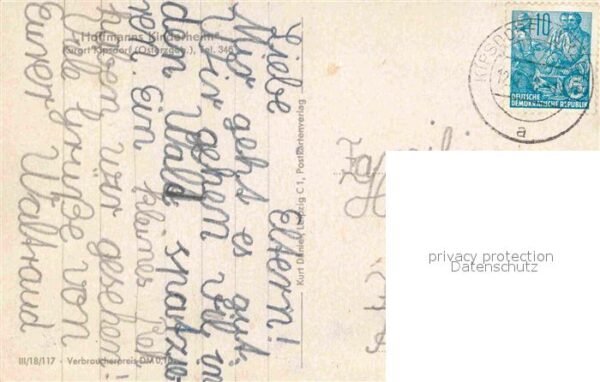 "Hoffmanns Kinderheim"
Kurort Kipsdorf (Osterzgeb.), Tel. 346
Liebe Eltern!
Mir geht es gut.
Wir gehen viel in
den Wald spatzie
ren. Ein kleines Re
wir gesehen!
Viele Grüße von
Eurer Waltraud
Kurt Daniel, Leipzig C 1, Postkartenverlag
III/18/117 - Verbraucherpreis DM 0,10
KIPSDORF
a
10
DEUTSCHE
DEMOKRATISCHE REPUBLIK
5
Familie
privacy protection
Datenschutz